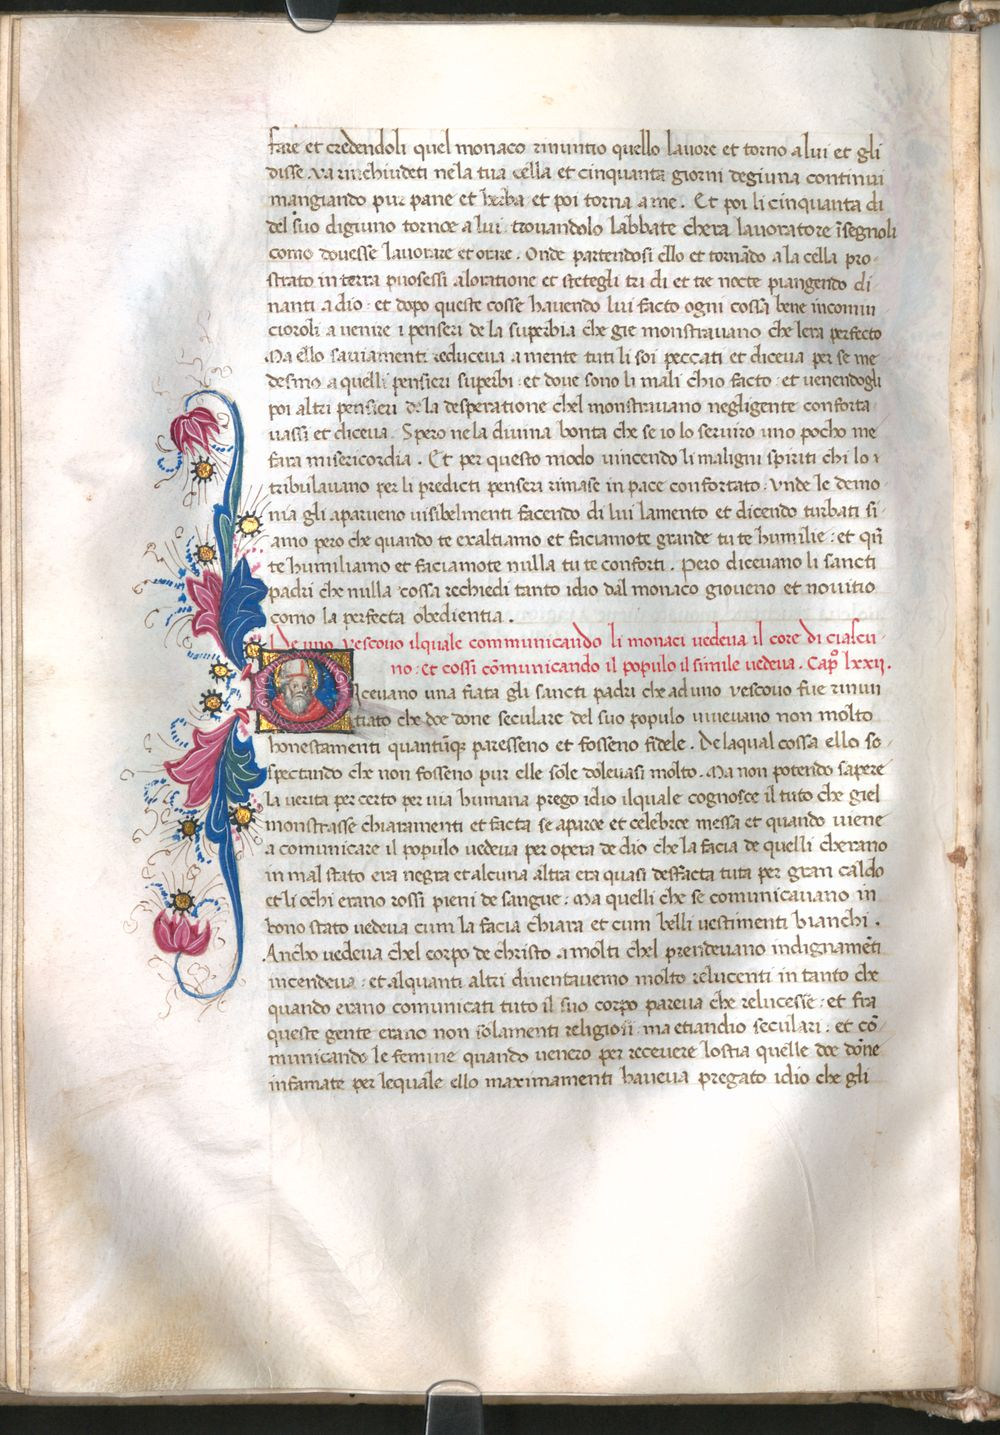 fare et credendoli quel monaco rinuntio quello lauore et torno a lui et gli
disse. va rinchiudeti ne la tua cella et cinquanta giorni degiuna continui
mangiando pur pane et herba et poi torna a me. Et poi li cinquanta di
del suo digiuno tornoe a lui. trouandolo labbate chera lauoratore ĩsegnoli
como douesse lauorare et orare. Onde partendosi ello et tornãdo a la cella pro
strato in terra puosessi a loratione et stetegli tri di et tre nocte piangendo di
nanti a dio. et dopo queste cosse hauendo lui facto ogni cossa bene incomin
cioroli a uenire i penseri de la superbia che gie monstrauano che lera perfecto
Ma ello sauiamenti reduceua a mente tuti li soi peccati et diceua per se me
desmo a quelli pensieri superbi. et doue sono li mali chio facto. et uenendogli
poi altri pensieri de la desperatione chel monstrauano negligente conforta
uassi et diceua. Spero ne la diuina bonta che se io lo seruiro uno pocho me
fara misericordia. Et per questo modo uincendo li maligni spiriti chi lo
tribulauano per li predicti penseri rimase in pace confortato. Vnde le demo
nia gli aparueno uisibelmenti facendo di lui lamento et dicendo turbati si
amo pero che quando te exaltiamo et faciamote grande tu te humilie: et qñ
te humiliamo et faciamote nulla tu te conforti. Pero diceuano li sancti
padri che nulla cossa rechiedi tanto idio dal monaco gioueno et nouitio
como la perfecta obedientia.
De uno vescouo ilquale communicando li monaci uedeua il core di ciascu
no. et cossi cõmunicando il populo il simile uedeua. Cap̃ lxxij.
Diceuano una fiata gli sancti padri che ad uno vescouo fue rinun
tiato che doe done seculare del suo populo uiueuano non molto
honestamenti quantũq; paresseno et fosseno fidele. De laqual cossa ello so
spectando che non fosseno pur elle sole doleuasi molto. Ma non potendo sapere
la uerita per certo per uia humana prego idio ilquale cognosce il tuto che giel
monstrasse chiaramenti et facta se aparoe et celebroe messa et quando uiene
a comunicare il populo uedeua per opera de dio che la facia de quelli cherano
in mal stato era negra et alcuna altra era quasi desffacta tuta per gran caldo
et li ochi erano rossi pieni de sangue. Ma quelli che se comunicauano in
bono stato uedeua cum la facia chiara et cum belli uestimenti bianchi.
Ancho uedeua chel corpo de christo a molti chel prendeuano indignamẽti
incendeua: et alquanti altri diuentauemo molto relucenti in tanto che
quando erano comunicati tuto il suo corpo pareua che relucesse. et fra
queste gente erano non solamenti religiosi. ma etiandio seculari. et cõ
municando le femine quando uenero per receuere lostia quelle doe dõne
infamate per lequale ello maximamenti haueua pregato idio che gli